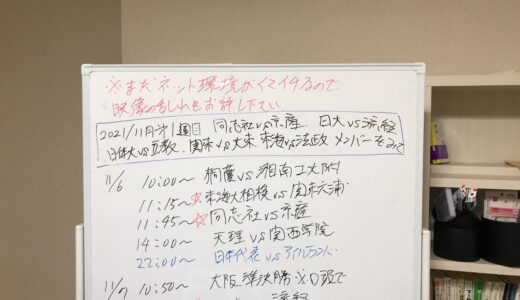 ※まだネット環境がイマイチなので
映像の乱れをお許し下さい
2021/11月オ1週目 同志社vs京産. 日大vs流経
日体大vs立教. 関東vs大東. 東海vs法政 メンバーをみて
11/6 10:00〜 桐蔭vs湘南工大附
11:15〜☆東海大相模vs関東六浦
11:45〜☆同志社vs京産
14:00〜 天理vs関西学院
22:00〜 日本代表vsアイルランド
11/7 10:50〜 大阪準決勝 ※D頭で
流経